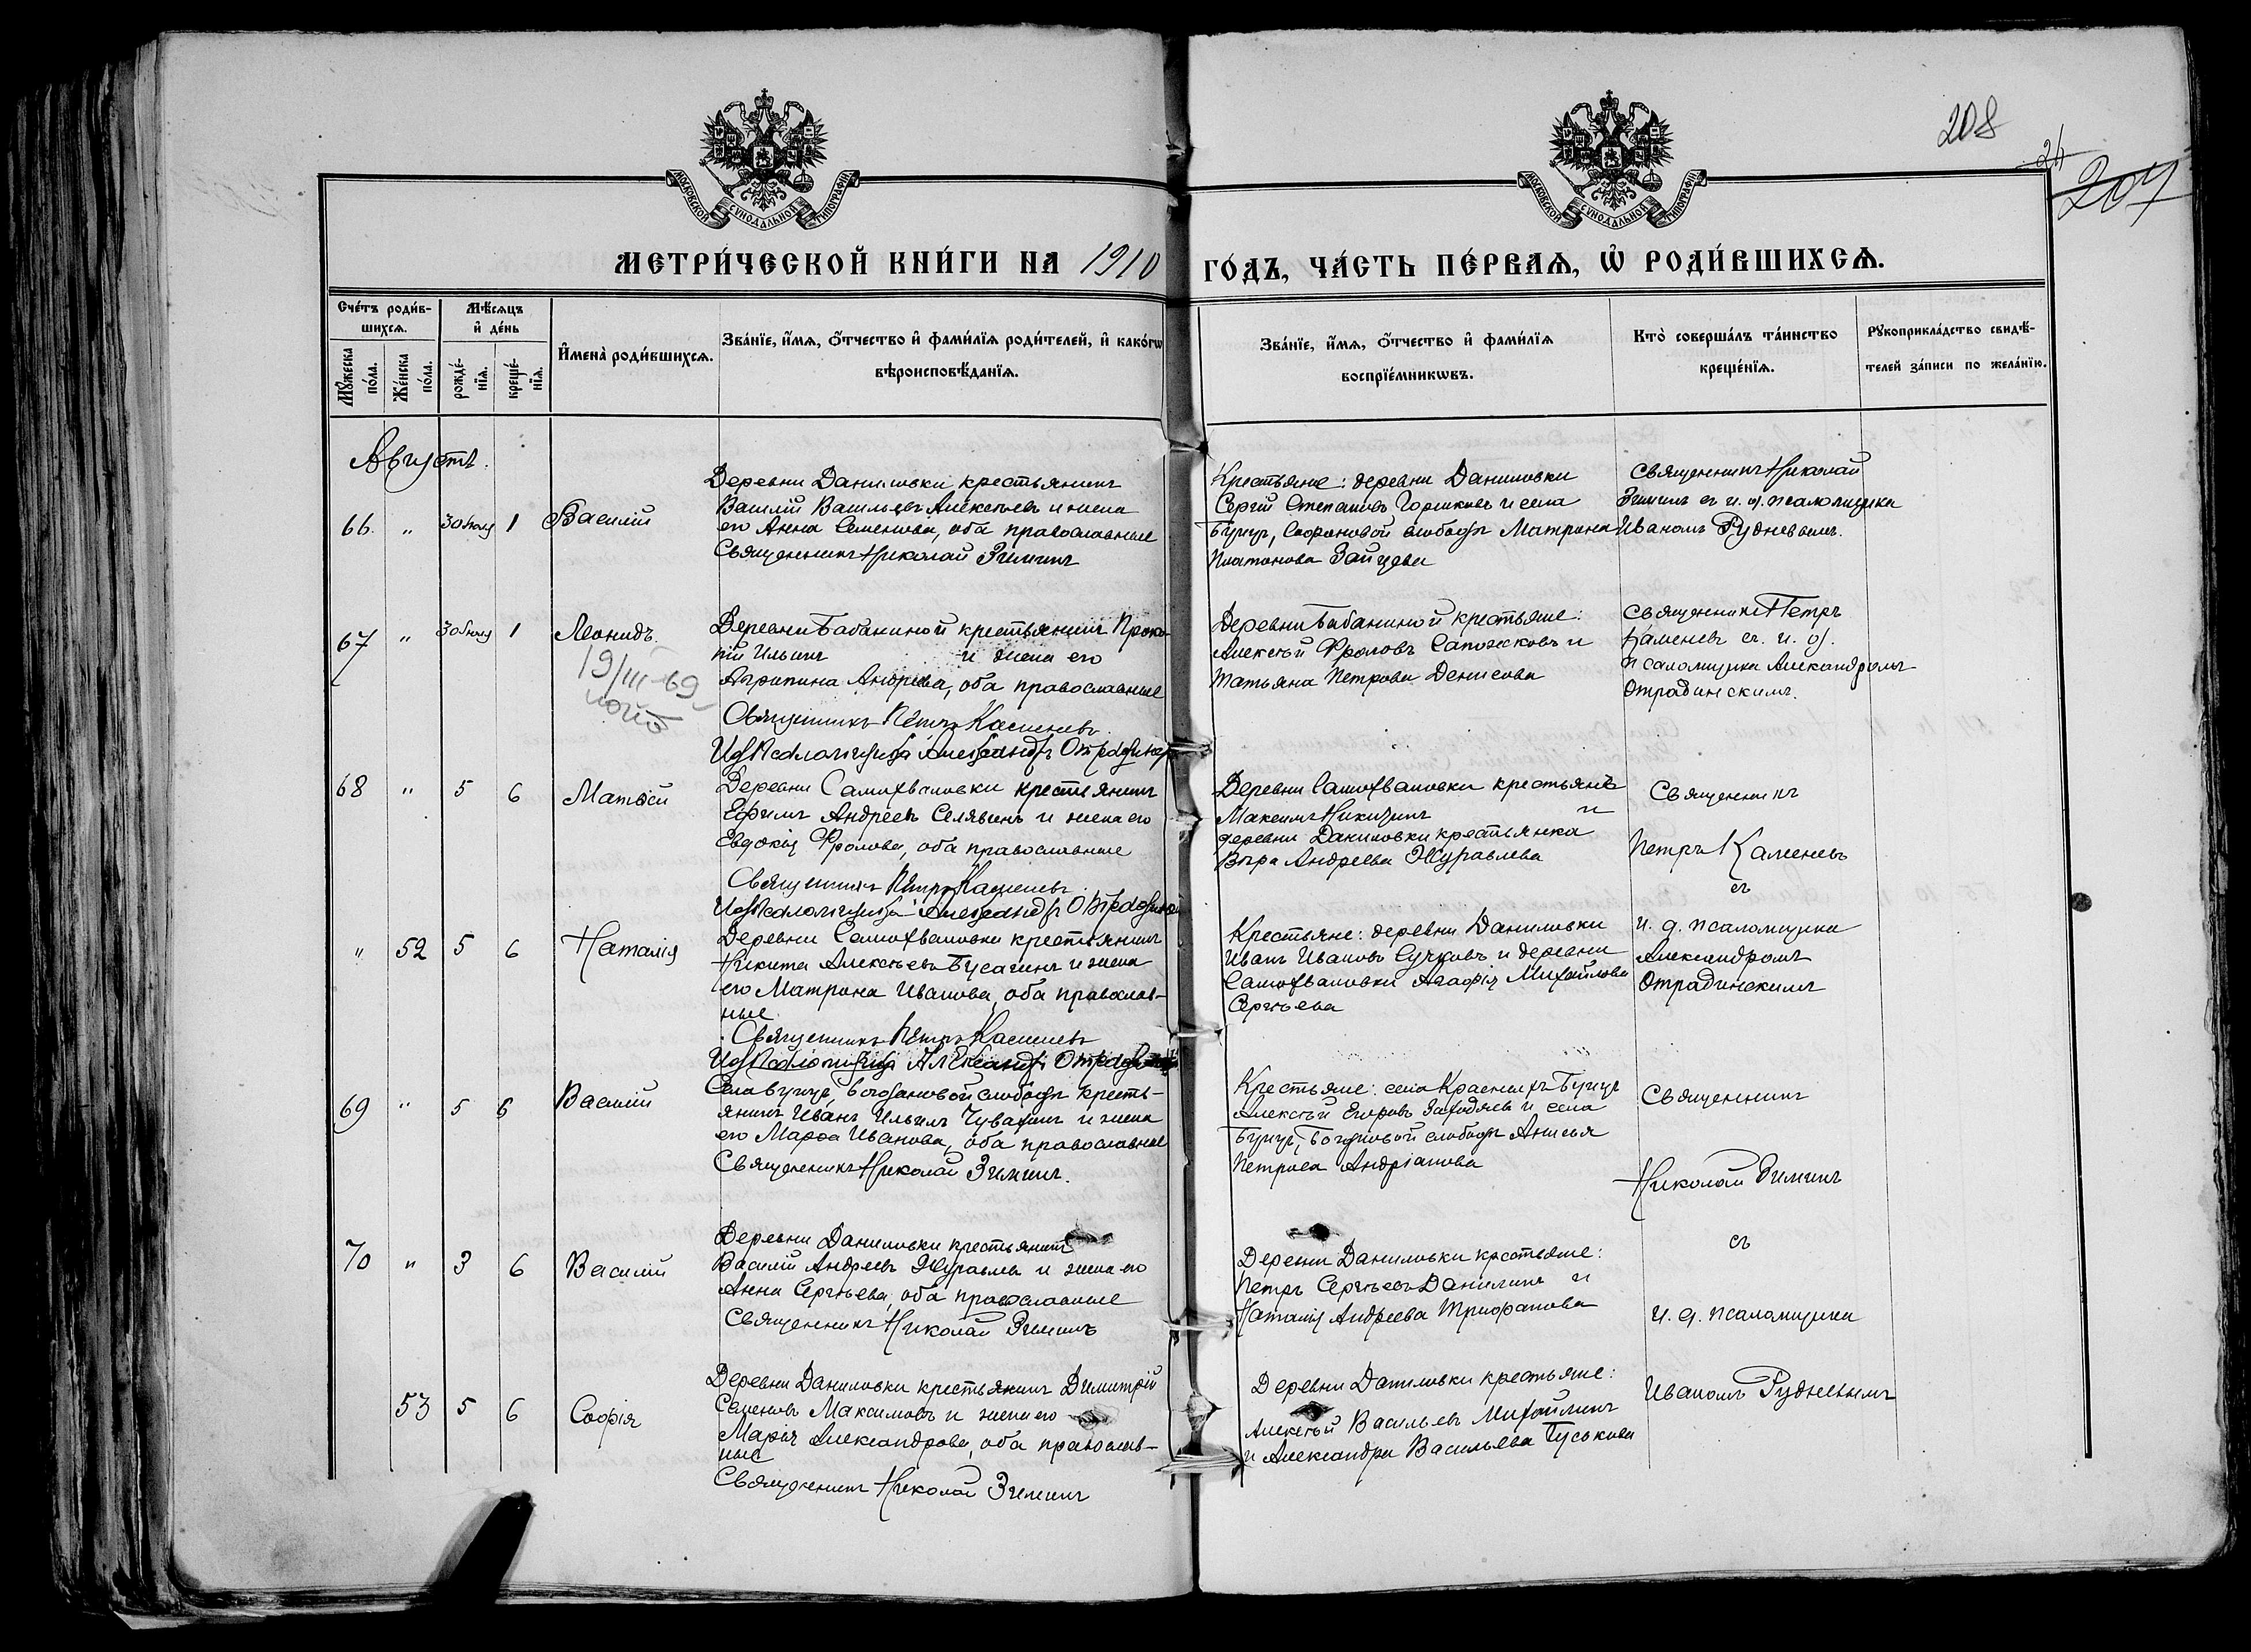 208
24
207
МОСКОВСКОЙ СѴНОДАЛЬНОЙ ТИПОГРАФІИ
МОСКОВСКОЙ СѴНОДАЛЬНОЙ ТИПОГРАФІИ
МЕТРИ́ЧЕСКОЙ КНИ́ГИ НА 1910 ГО́ДЪ, ЧА́СТЬ ПЕ́РВАѦ, Ѡ҆ РОДИ́ВШИХСѦ.
Сче́тъ роди́в-
шихсѧ.
Мꙋ́жеска
по́ла.
Же́нска
по́ла.
Мѣ́сѧцъ
и҆ де́нь
рожде́-
нїѧ.
креще́-
нїѧ.
И҆мена̀ роди́вшихсѧ.
Зва́нїе, и҆́мѧ, ѻ҆́тчество и҆ фами́лїѧ роди́телей, и҆ како́гѡ
вѣроисповѣ́данїѧ.
Зва́нїе, и҆́мѧ, ѻ҆́тчество и҆ фами́лїѧ
воспрїе́мникѡвъ.
Кто̀ соверша́лъ та́инство
креще́нїѧ.
Рꙋкоприкла́дство свидѣ́-
телей за́писи по жела́нїю.
Августъ.
66. " 30 Іюля 1 Василій
Деревни Даниловки крестьянинъ
Василій Васильевъ Алексѣевъ и жена
его Анна Семенова, оба православные
Священникъ Николай Зиминъ
Крестьяне: деревни Даниловки
Сергій Степановъ Горшковъ и села
Бучуръ, Сафоновой слободы Матрона
Платонова Зайцева
Священникъ Николай
Зиминъ съ и. д. псаломщика
Иваномъ Рудневымъ.
67 " 30 Іюля 1 Леонидъ
19/III-69
Деревни Бабаниной крестьянинъ Проко-
пій Ильинъ и жена его
Агрипина Андреева, оба православные
Священникъ Петръ Каменевъ
Ид Псаломщика Александръ Отрадинскій
Деревни Бабаниной крестьяне:
Алексѣй Фроловъ Сапожковъ и
Татьяна Петрова Денисова
Священникъ Петръ
Каменевъ съ и. д.
псаломщика Александромъ
Отрадинскимъ.
68 " 5 6 Матвѣй
Деревни Самохваловки крестьянинъ
Ефимъ Андреевъ Селявинъ и жена его
Евдокія Фролова, оба православные
Священникъ Петръ Каменевъ
Ид Псаломщика Александръ Отрадинскій
Деревни Самохваловки крестьянъ
Максимъ Никитинъ и
деревни Даниловки крестьянка
Вѣра Андреева Журавлева
Священникъ
Петръ Каменевъ
съ
" 52 5 6 Наталія
Деревни Самохваловки крестьянинъ
Никита Алексѣевъ Бусагинъ и жена
его Матрона Иванова, оба православ-
ные
Священникъ Петръ Каменевъ
Ид Псаломщика Александръ Отрадинскій
Крестьяне: деревни Даниловки
Иванъ Ивановъ Сучковъ и деревни
Самохваловки Агафія Михайлова
Сергѣева
и. д. псаломщика
Александромъ
Отрадинскимъ
69 " 5 6 Василій
Села Бучуръ, Богдановой слободы кресть-
янинъ Иванъ Ильинъ Чувахинъ и жена
его Марѳа Иванова, оба православные
Священникъ Николай Зиминъ.
Крестьяне: села Красныхъ Бучуръ
Алексѣй Егоровъ и села
Бучуръ, Богдановой слободы Анисья
Петрова Андріанова
Священникъ
Николай Зиминъ
70 " 3 6 Василій
Деревни Даниловки крестьянинъ
Василій Андреевъ Журавлевъ и жена его
Анна Сергѣева, оба православные
Священникъ Николай Зиминъ
Деревни Даниловки крестьяне:
Петръ Сергѣевъ Данилинъ и
Наталія Андреева Трифанова
съ
и. д. псаломщика
53 5 6 Софія
Деревни Даниловки крестьянинъ Димитрій
Семеновъ Максимовъ и жена его
Марія Александрова, оба православ-
ные
Священникъ Николай Зиминъ
Деревни Даниловки крестьяне:
Алексѣй Васильевъ Михайлинъ
и Александра Васильева Гуськова
Иваномъ Рудневымъ